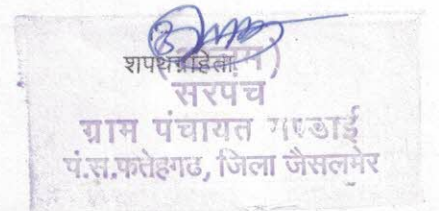 शपथग्रहिता
सरपंच
ग्राम पंचायत
पं.स.फतेहगढ, जिला जैसलमेर